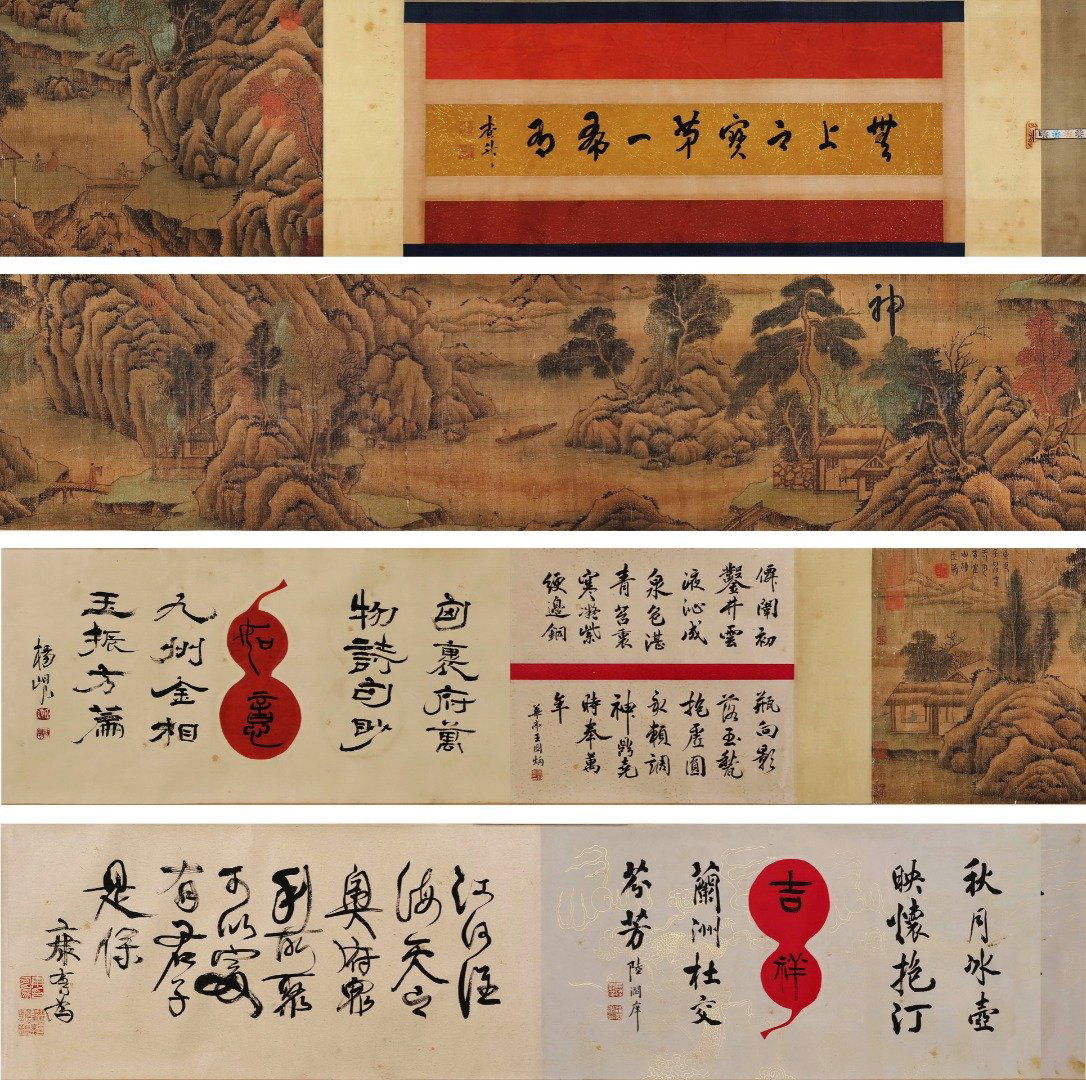 無上之寶第一希有
查昇
神
僊闌初
鑿井雲
液沁成
泉色湛
青苔裏
寒凝紫
綆邊銅
瓶向影
落玉甃
抱虛圓
永賴調
神鼎堯
時奉萬
年
王圖炳
匈裏府萬
物詩句眇
如意
九州金相
玉振方蕭
楊峴
秋月冰壺
映懷抱汀
吉祥
蘭洲杜交
芬芳
陸潤庠
江河淮
海天之
奧府眾
利所聚
可以富
有君子
是保
康有為